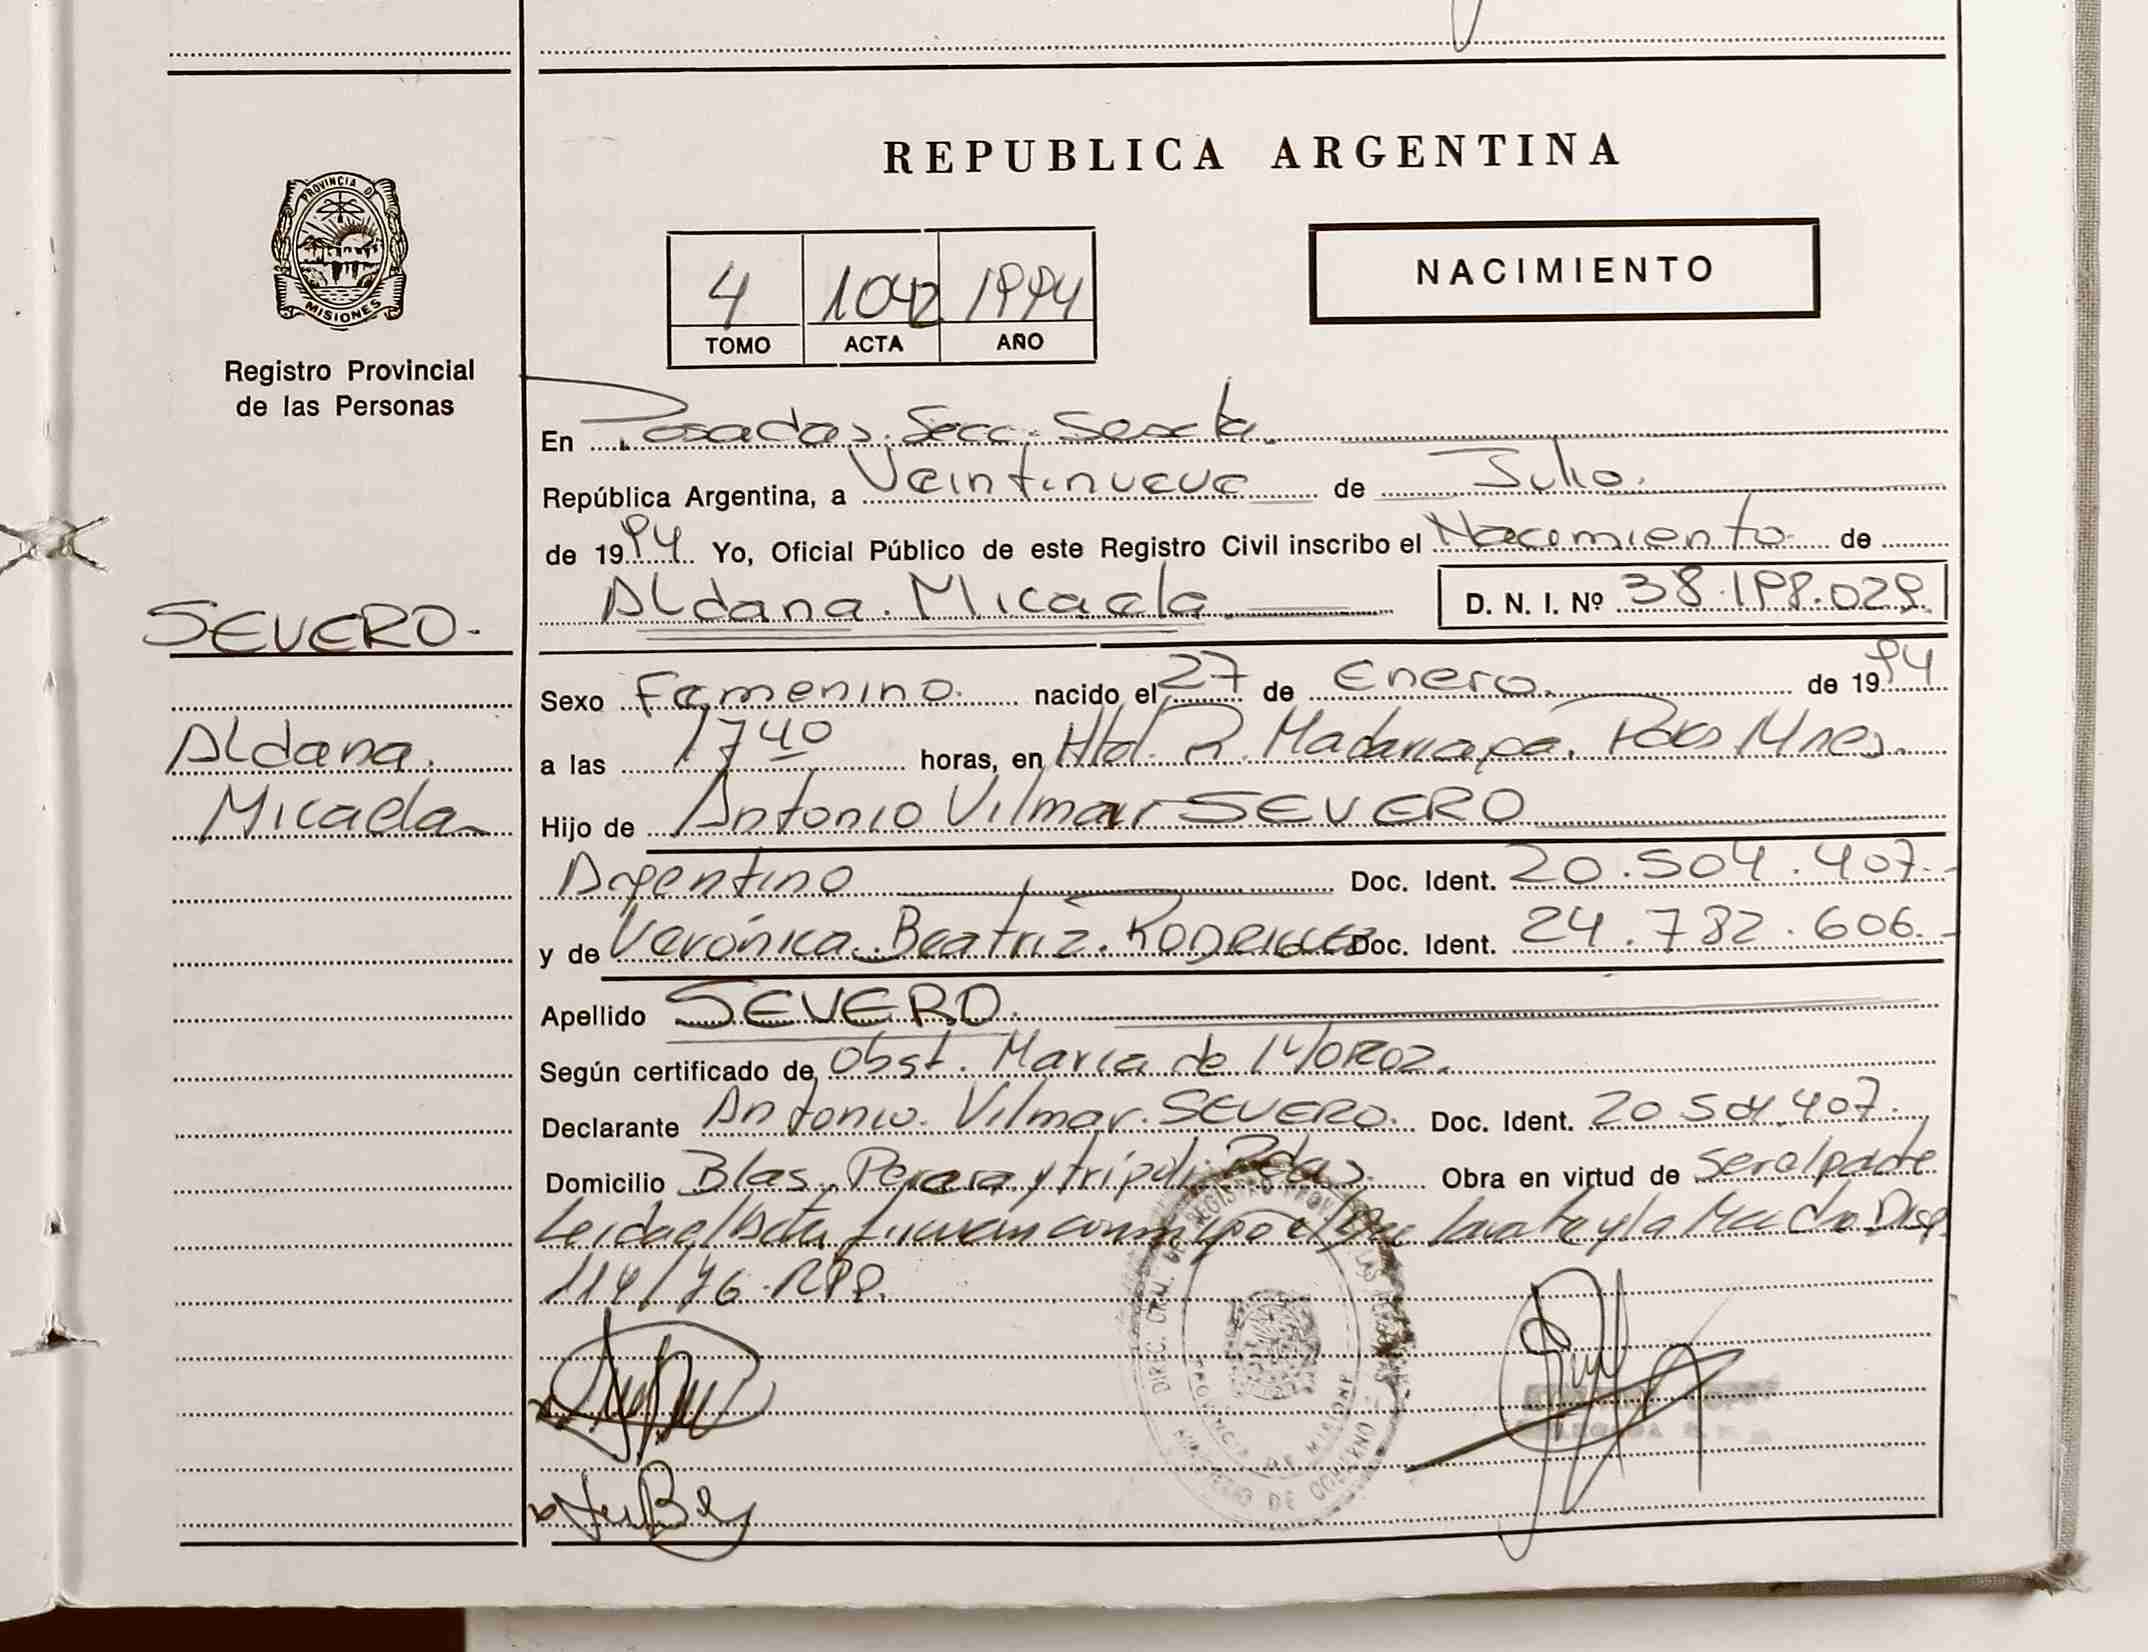 REPUBLICA ARGENTINA
PROVINCIA D MISIONES
Registro Provincial
de las Personas
4 1042 1994
TOMO ACTA AÑO
NACIMIENTO
En Posadas. Secc. Sexta.
República Argentina, a Veintinueve de Julio.
de 1994. Yo, Oficial Público de este Registro Civil inscribo el Nacimiento de
Aldana. Micaela D. N. I. Nº 38.198.029.
SEVERO.
Aldana.
Micaela
Sexo Femenino. nacido el 27 de Enero. de 1994
a las 1740 horas, en Htal. R. Madariaga. Pdas Mnes.
Hijo de Antonio Vilmar SEVERO
Argentino Doc. Ident. 20.504.407.-
y de Verónica. Beatriz. RODRIGUEZ Doc. Ident. 24.782.606.-
Apellido SEVERO.
Según certificado de Obst. Maria de MOROZ.
Declarante Antonio. Vilmar. SEVERO. Doc. Ident. 20.504.407.
Domicilio Blas. Perera y tripoli. Pdas. Obra en virtud de ser el padre
Leida el Acta firman conmigo el y la Madre Disp
114/76. RPP.
DIREC. GRAL. DE REGISTRO PROV. DE LAS PERSONAS
PROVINCIA DE MISIONES
MINISTERIO DE GOBIERNO